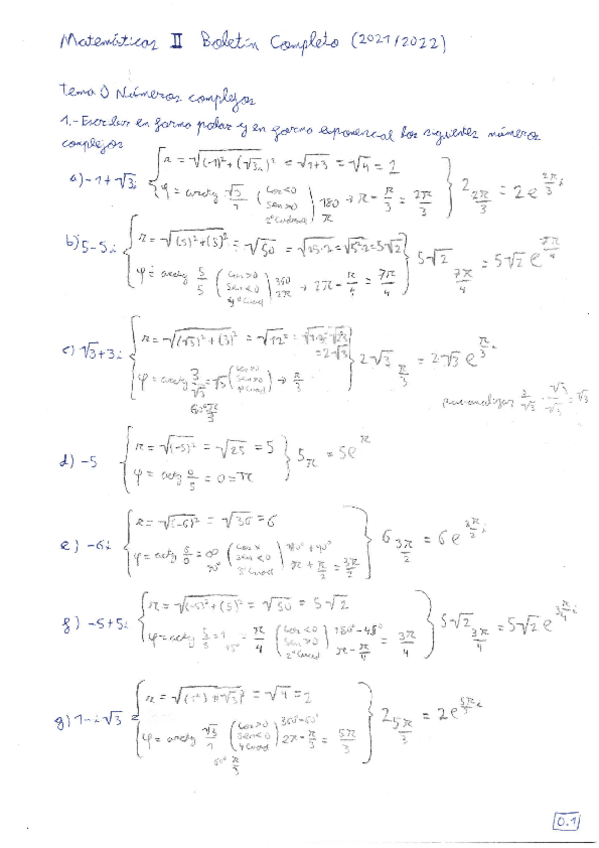 Matemáticas II Boletín Completo (2021/2022)
Tema 0 Números complejos
1.- Escribir en forma polar y en forma exponencial los siguientes números
complejos
a) -1+√3i { r = √((-1)²+(√3)²) = √(1+3) = √4 = 2
φ = arctg √3/1 (cos<0 sen>0 2º Cuadrante) 180 π → π - π/3 = 2π/3 } 2 2π/3 = 2e^(2π/3 i)
b) 5-5i { r = √((5)²+(5)²) = √50 = √(25·2) = √(5²·2) = 5√2
φ = arctg 5/5 (cos>0 sen<0 4º Cuad) 360 2π → 2π - π/4 = 7π/4 } 5√2 7π/4 = 5√2 e^(7π/4
c) √3+3i { r = √((√3)²+(3)²) = √12 = = 2√3
φ = arctg 3/√3 = √3 → π/3 } 2√3 π/3 = 2√3 e^(π/3 i)
3/√3 · √3/√3 = √3
d) -5 { r = √(-5)² = √25 = 5
φ = arctg 0/5 = 0 = π } 5 π = 5e^π
e) -6i { r = √(-6)² = √36 = 6
φ = arctg 6/0 = ∞ 90° (sen<0 3º Cuad) 180°+90° π + π/2 = 3π/2 } 6 3π/2 = 6e^(3π/2 i)
f) -5+5i { r = √((-5)²+(5)²) = √50 = 5√2
φ = arctg 5/5 = 1 45° = π/4 (cos<0 sen>0 2º Cuad) 180°-45° π - π/4 = 3π/4 } 5√2 3π/4 = 5√2 e^(3π/4 i)
g) 1-i√3 { r = = √4 = 2
φ = arctg √3/1 60° π/3 (cos>0 sen<0 4º Cuad) 360-60° 2π - π/3 = 5π/3 } 2 5π/3 = 2e^(5π/3 i)
0.1